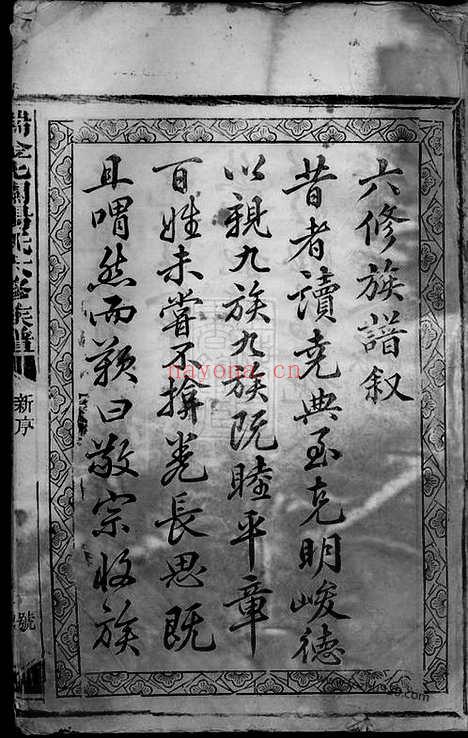 六修族譜叙
昔者讀堯典至克明峻德
以親九族九族既睦平章
百姓未嘗不揜卷長思既
且喟然而歎曰敬宗收族
族譜
新序
號
nayona.cn